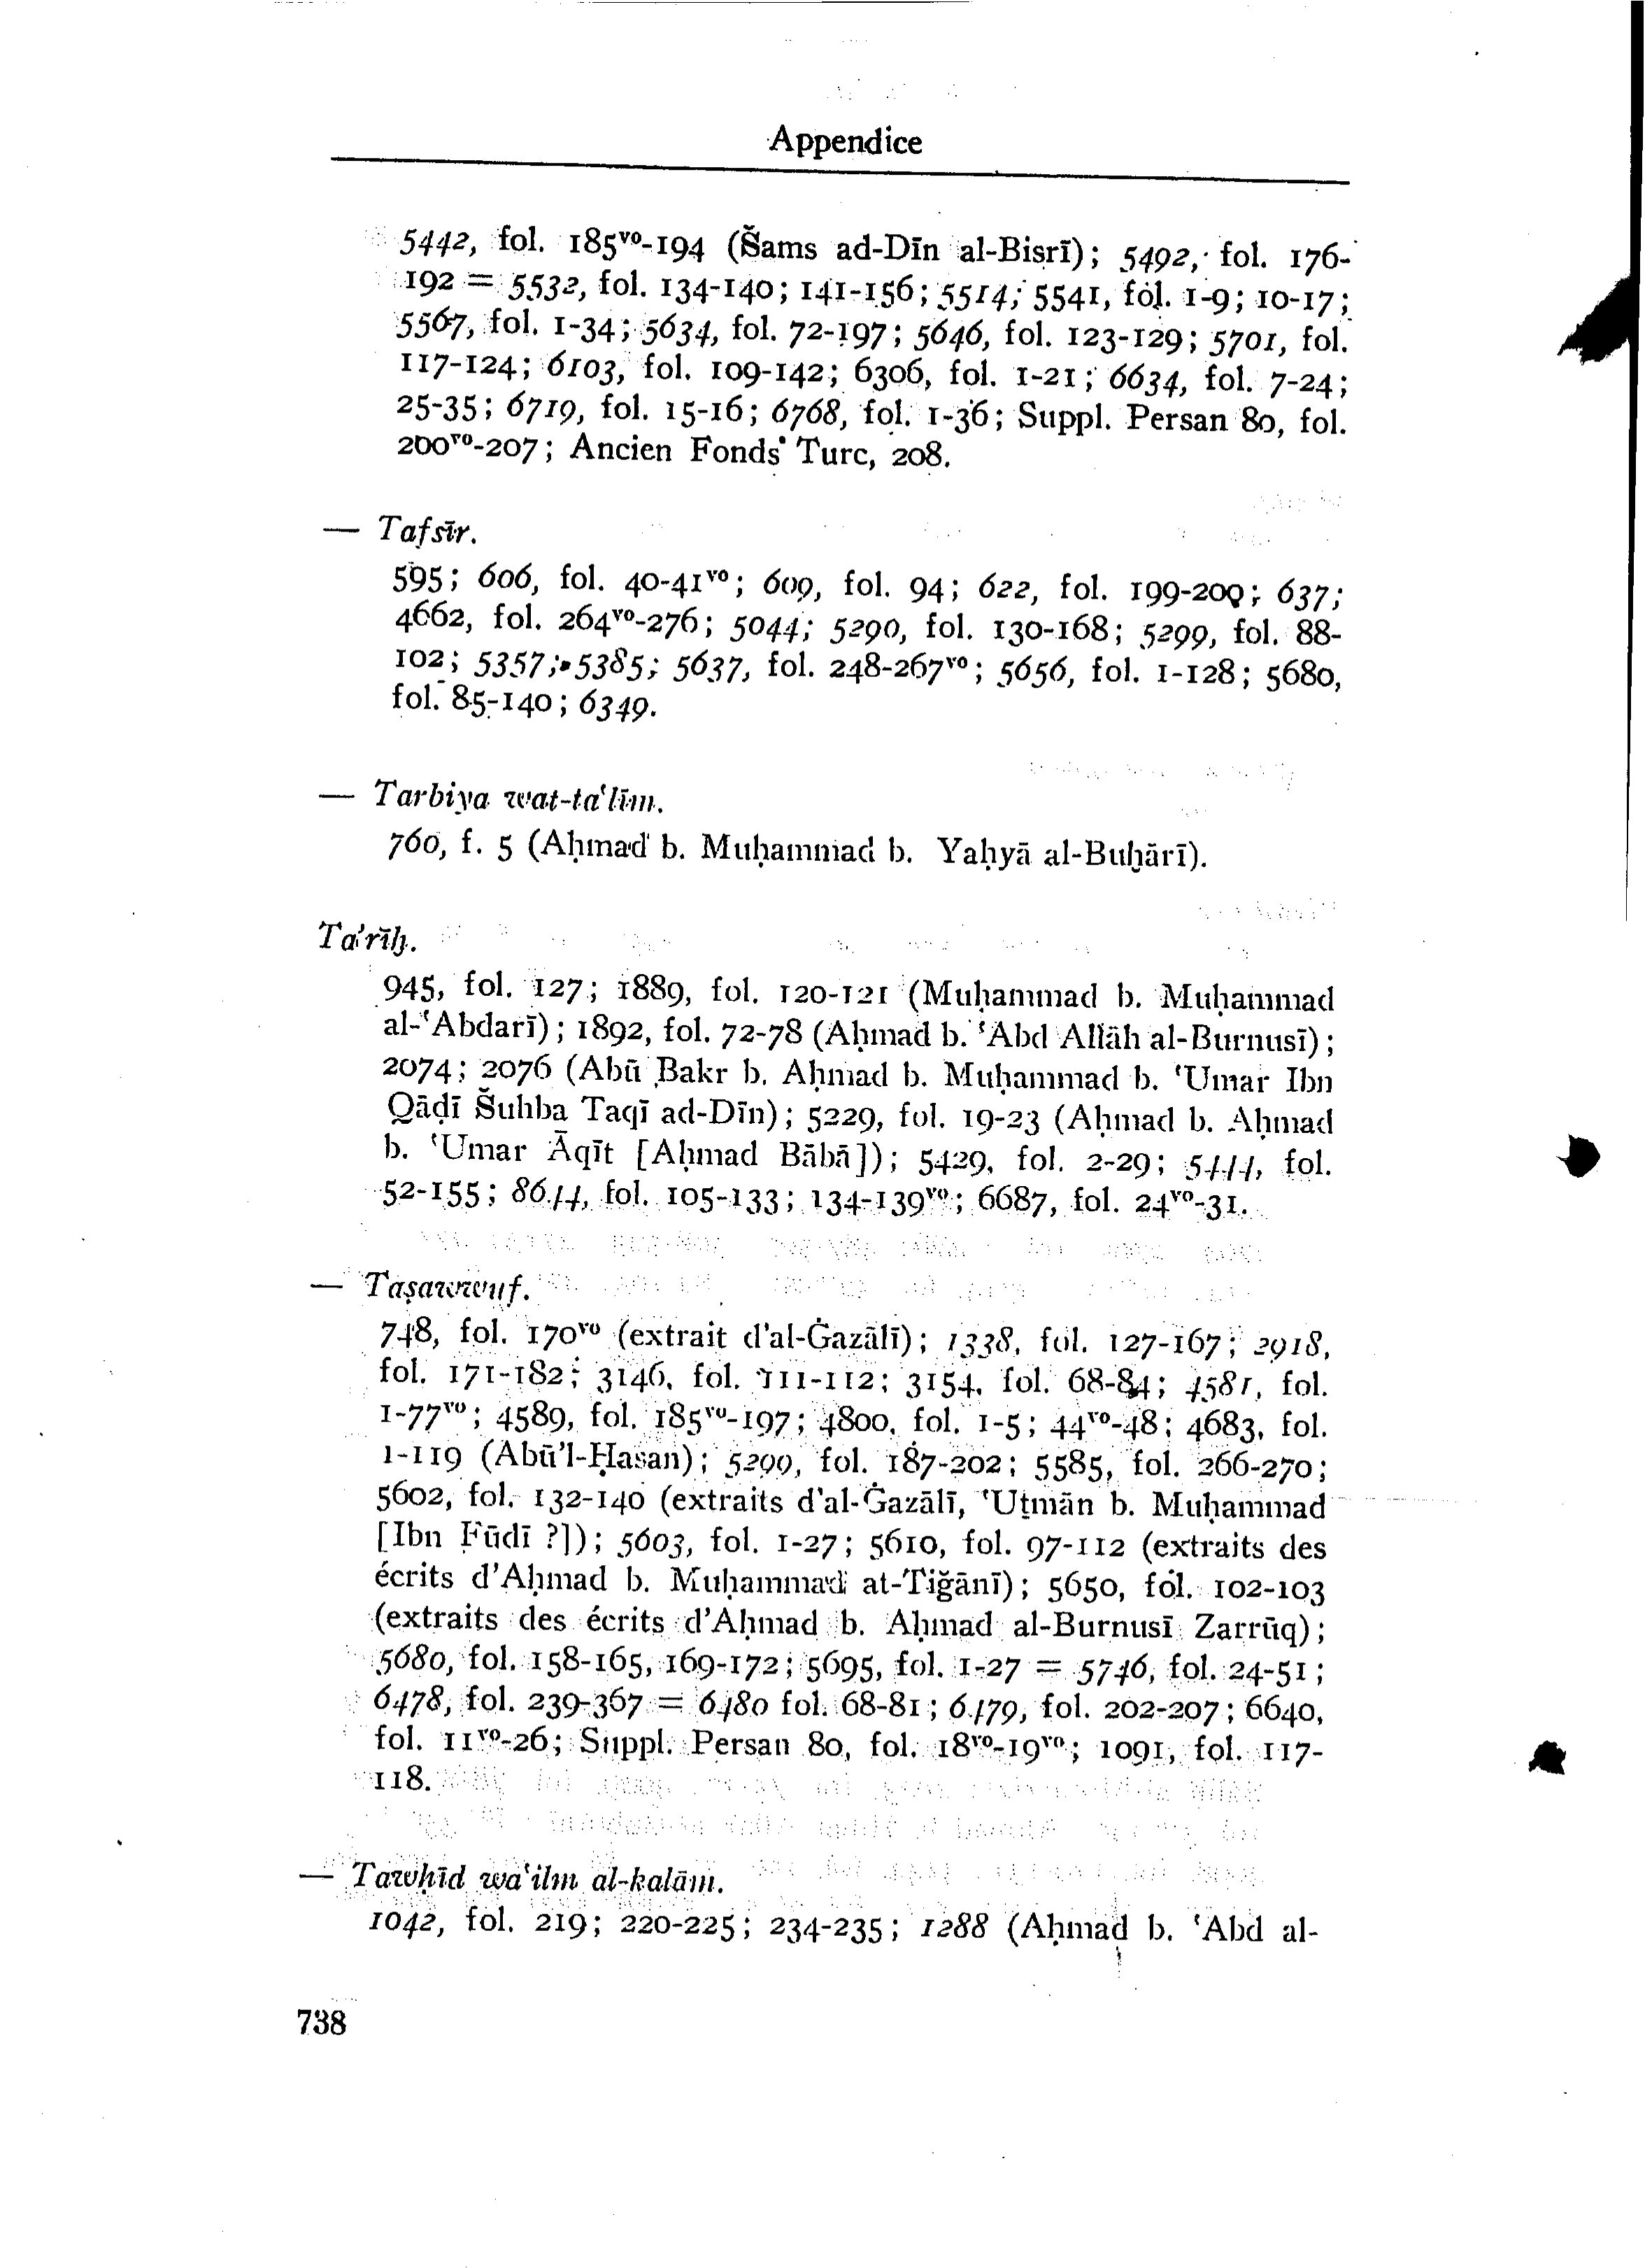 Appendice
5442, fol. 185vo-194 (Šams ad-Dīn al-Biṣrī); 5492, fol. 176-
192 = 5532, fol. 134-140; 141-156; 5514; 5541, fol. 1-9; 10-17;
5567, fol. 1-34; 5634, fol. 72-197; 5646, fol. 123-129; 5701, fol.
117-124; 6103, fol. 109-142; 6306, fol. 1-21; 6634, fol. 7-24;
25-35; 6719, fol. 15-16; 6768, fol. 1-36; Suppl. Persan 80, fol.
200vo-207; Ancien Fonds Turc, 208.
— Tafsīr.
595; 606, fol. 40-41vo; 609, fol. 94; 622, fol. 199-200; 637;
4662, fol. 264vo-276; 5044; 5290, fol. 130-168; 5299, fol. 88-
102; 5357; 5385; 5637, fol. 248-267vo; 5656, fol. 1-128; 5680,
fol. 85-140; 6349.
— Tarbiya wat-ta'līm.
760, f. 5 (Aḥmad b. Muḥammad b. Yaḥyā al-Buḫārī).
Ta'rīḫ.
945, fol. 127; 1889, fol. 120-121 (Muḥammad b. Muḥammad
al-'Abdarī); 1892, fol. 72-78 (Aḥmad b. 'Abd Allāh al-Burnusī);
2074; 2076 (Abū Bakr b. Aḥmad b. Muḥammad b. 'Umar Ibn
Qāḍī Šuhba Taqī ad-Dīn); 5229, fol. 19-23 (Aḥmad b. Aḥmad
b. 'Umar Āqīt [Aḥmad Bābā]); 5429, fol. 2-29; fol.
52-155; fol. 105-133; 134-139vo; 6687, fol. 24vo-31.
— Taṣawwuf.
748, fol. 170vo (extrait d'al-Ġazālī); 1338, fol. 127-167; 2918,
fol. 171-182; 3146, fol. 111-112; 3154, fol. 68-84; 4581, fol.
1-77vo; 4589, fol. 185vo-197; 4800, fol. 1-5; 44vo-48; 4683, fol.
1-119 (Abū'l-Ḥasan); 5299, fol. 187-202; 5585, fol. 266-270;
5602, fol. 132-140 (extraits d'al-Ġazālī, 'Uṯmān b. Muḥammad
[Ibn Fūdī ?]); 5603, fol. 1-27; 5610, fol. 97-112 (extraits des
écrits d'Aḥmad b. Muḥammad at-Tiğānī); 5650, fol. 102-103
(extraits des écrits d'Aḥmad b. Aḥmad al-Burnusī Zarrūq);
5680, fol. 158-165, 169-172; 5695, fol. 1-27 = 5746, fol. 24-51;
6478, fol. 239-367 = 6480 fol. 68-81; 6479, fol. 202-207; 6640,
fol. 11vo-26; Suppl. Persan 80, fol. 18vo-19vo; 1091, fol. 117-
118.
— Tawḥīd wa'ilm al-kalām.
1042, fol. 219; 220-225; 234-235; 1288 (Aḥmad b. 'Abd al-
738